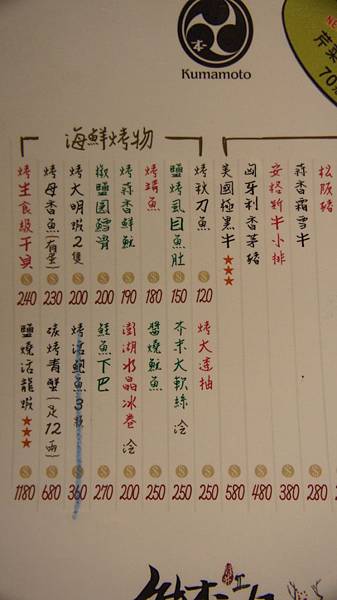 本
Kumamoto
NE
芹菜
70元
海鮮烤物
松阪豬
280
蒜香霜雪牛
280
安格斯牛小排
380
匈牙利香草豬
480
美國極黑牛★★★
580
烤秋刀魚
120
鹽烤虱目魚肚
150
烤鯖魚
180
烤蒜香鮮魷
190
椒鹽圓鱈滑
200
烤大明蝦2隻
200
烤母香魚(有蛋)
230
烤生食級干貝
240
烤大透抽
250
芥末大軟絲 冷
250
醬燒魷魚
250
澎湖水晶冰卷 冷
200
鮭魚下巴
270
烤活鮑魚3顆
360
碳烤青蟹(足12兩)
680
鹽燒活龍蝦★★★
1180